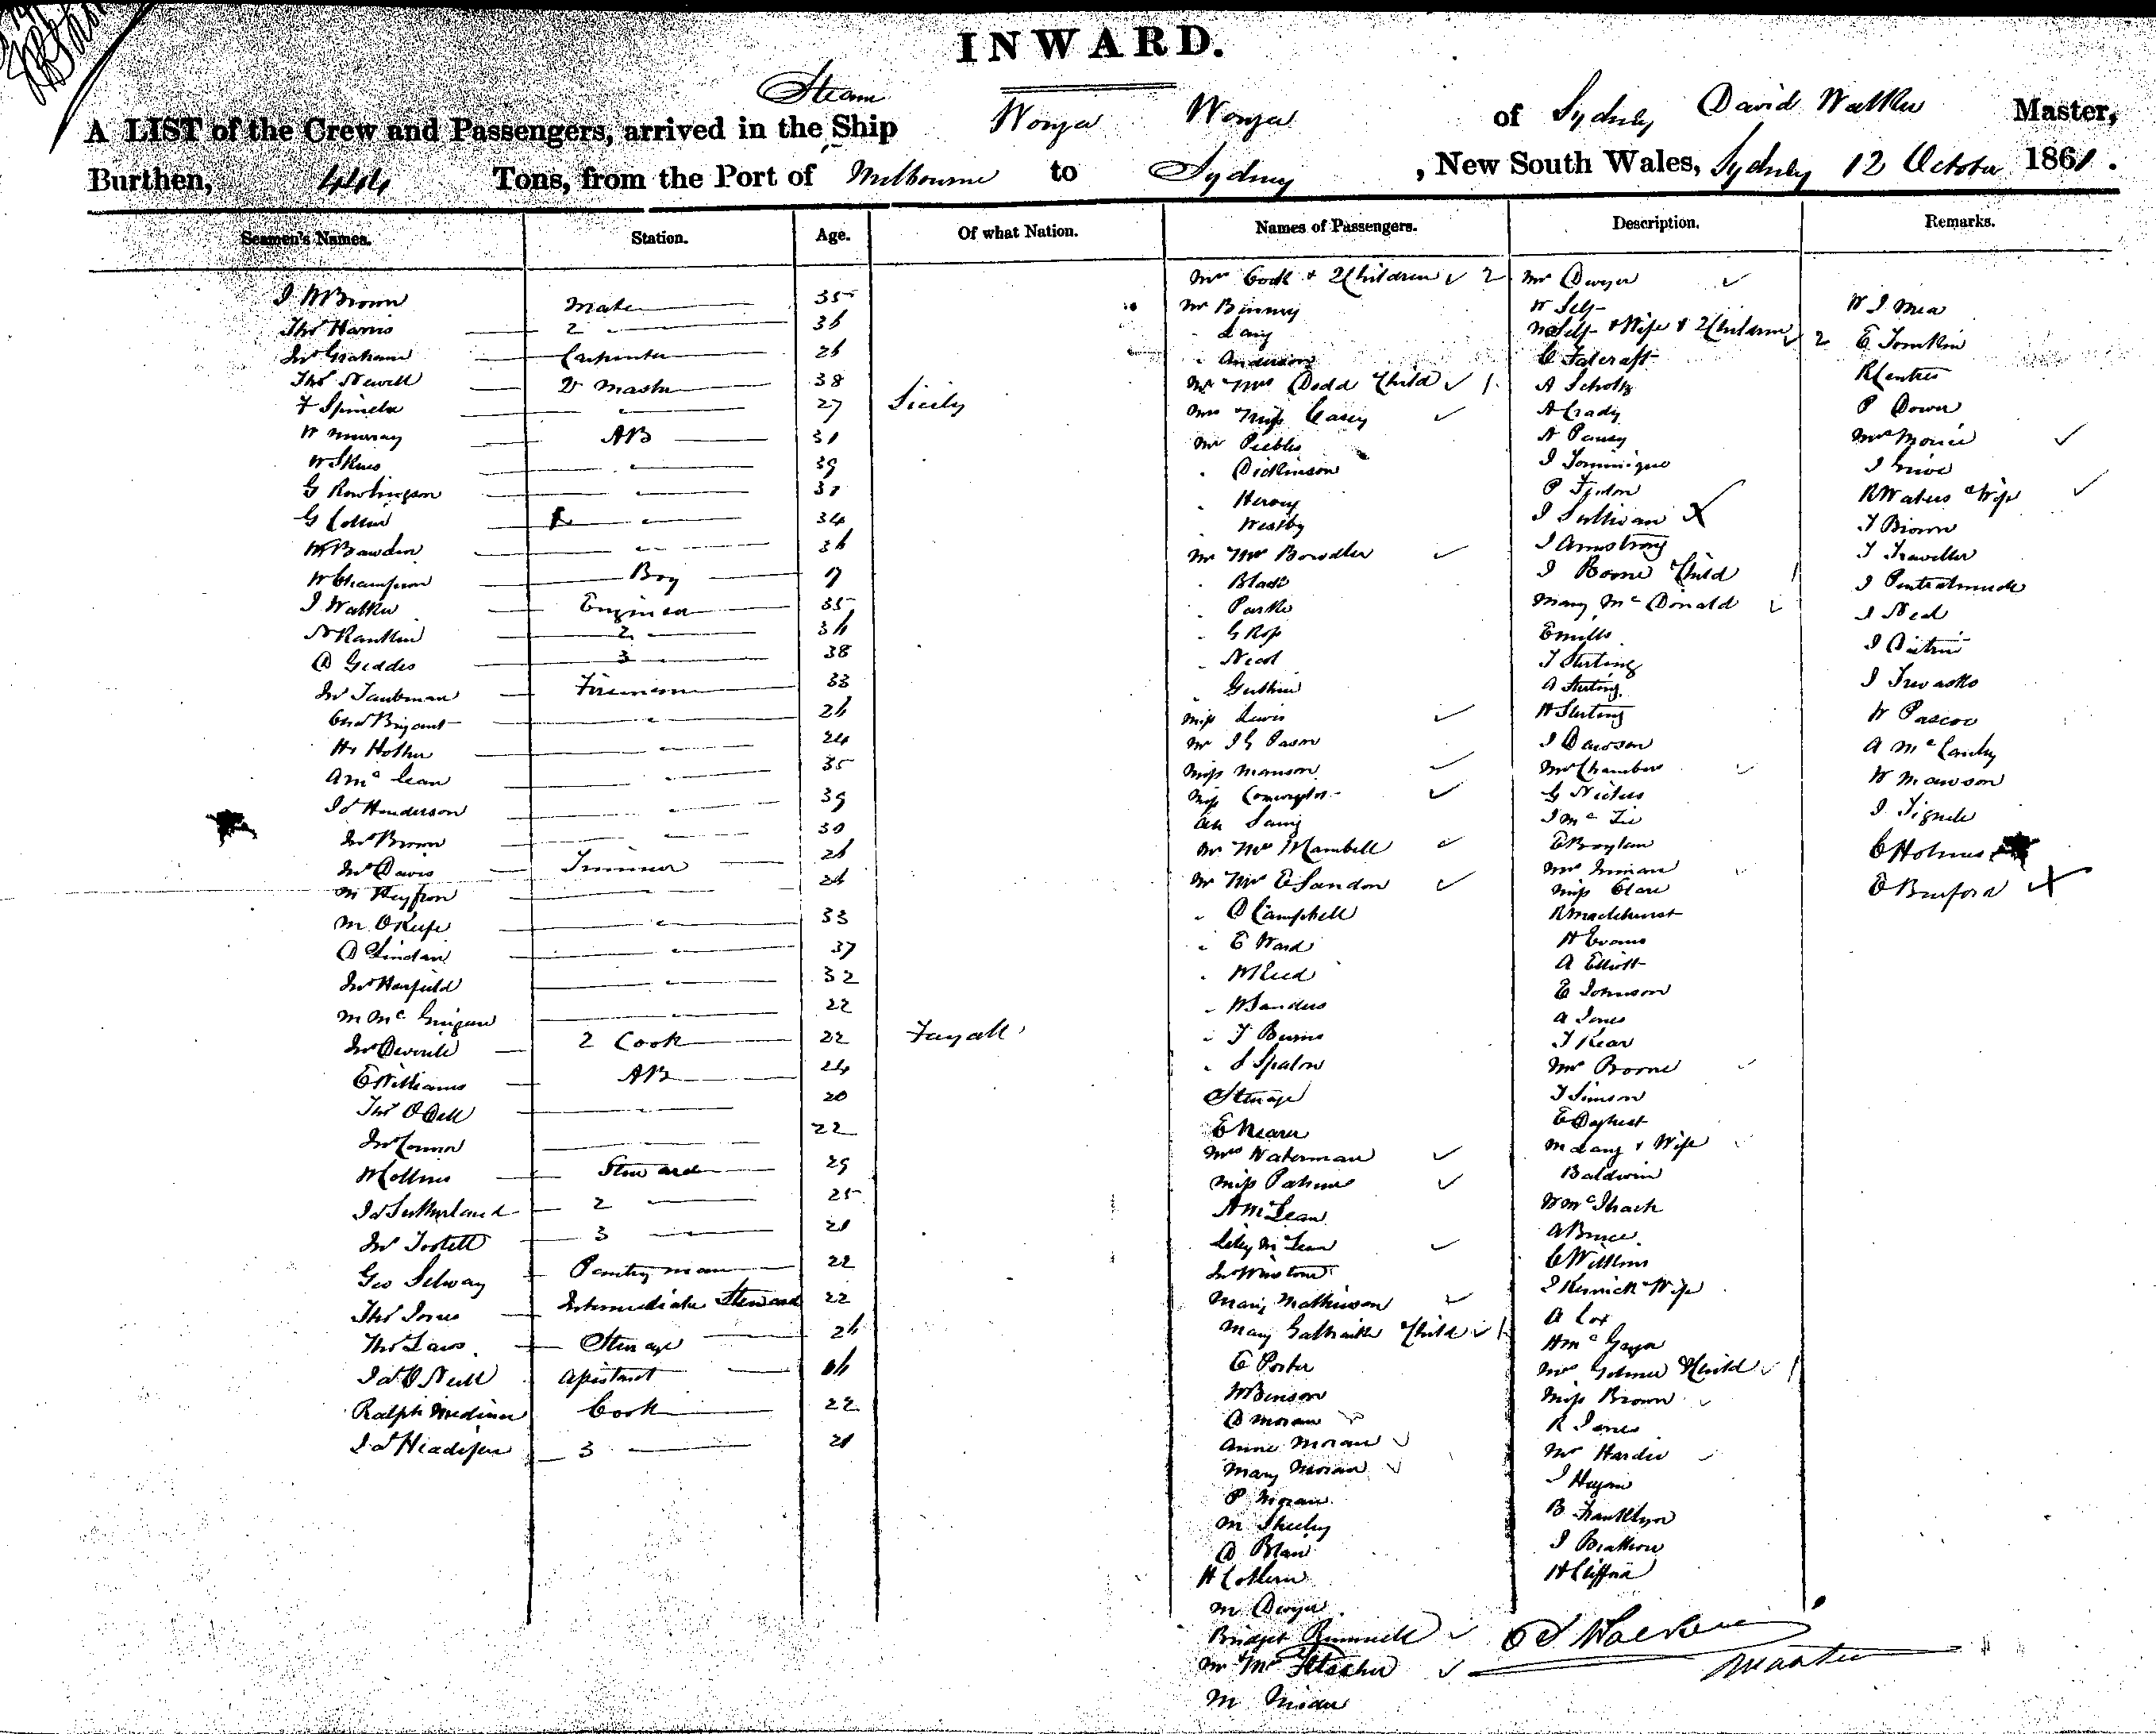 INWARD.
Steam
A LIST of the Crew and Passengers, arrived in the Ship Wonga Wonga of Sydney David Walker Master,
Burthen, 444 Tons, from the Port of Melbourne to Sydney , New South Wales, Sydney 12 October 1861.
Seamen's Names. Station. Age. Of what Nation. Names of Passengers. Description. Remarks.
J W Brown Mate 35
Thos Harris 2 36
Jno Graham Carpenter 26
Thos Newell Master 38
F Spinela " 27 Sicily
W Murray AB 31
W Skues " 39
G Rowlingson " 31
G Collin " 34
W Bawden " 36
W Champion Boy 17
J Walker Engineer 35
N Rankin 2 36
D Geddes 3 38
Jno Taubman Fireman 33
Chas Bryant " 26
Hy Hother " 24
A McLean " 35
Jas Henderson " 39
Jno Brown " 30
Jno Davis Trimmer 26
M Heffron " 26
M O'Keefe " 33
D Lindin " 37
Jno Harfield " 32
M McGuigan " 22
Jno Deverill 2 Cook 22 Fayall
E Williams AB 24
Thos O'Dell " 20
Jno Connor 22
W Collins Steward 29
Jas Sutherland 2 25
Jno Tootell 3 21
Geo Selway Pantryman 22
Thos Jones Intermediate Steward 22
Thos Laws Steerage 26
Jas O'Neill Assistant 16
Ralph Cook 22
Jas 3 21
Mrs Cook & 2 Children 2
Mr Binney
" Lang
" Anderson
Mr Mrs Dodd & Child 1
Mrs & Miss Casey
Mr Peebles
" Dickinson
" Hervey
" Westby
Mr Mrs Bowdler
" Black
" Parker
" G Ross
" Nicol
" Guthrie
Miss Lewis
Mr J G Pason
Miss Manson
Miss
Ah Sang
Mr Mrs Mambell
Mr Mrs E Landon
" D Campbell
" E Ward
" W Reed
" W Sanders
" T Burns
" S Spalon
Steerage
E
Mrs Waterman
Miss Palmer
A McLean
McLean
Jno Winstone
Mary Mathieson
Mary Galbraith & Child 1
E Porter
W Benson
D Moran
Anne Moran
Mary Moran
P Moran
M Sheehy
D Blair
H Collins
M Dwyer
Bridget
Mr Mrs Fletcher
M
Mrs Dwyer
W Self
Self & Wife & 2 Children 2
C Falcraft
A Scholtz
A Crady
N Pansy
J Tominique
P
J Sullivan
J Armstrong
J Boone & Child 1
Mary McDonald
E Mills
T Sterling
A Sterling
H Sterling
J Dawson
Mrs Chambers
G
J McFie
E Boylan
Mrs Inman
Miss Clare
R Maclehurst
H Evans
A Elliott
E Johnson
A Jones
T Kear
Mrs Boone
T Simson
E
M Lang & Wife
Baldwin
W McShach
A Bruce
C Wilkins
J Kerrick & Wife
A Cox
H McGregor
Mrs & Child 1
Miss Brown
R Jones
Mrs Hardie
J Hogan
B Franklyn
J
H Clifford
W J Mea
E Tomklin
R Centres
P Down
Mrs Morris
J
R Waters & Wife
T Brown
T Traveller
J
J Neal
J
J Trevaskis
W Pascoe
A McCauley
W Mawson
J Tignele
C Holmes
E Burford
D Walker
Master